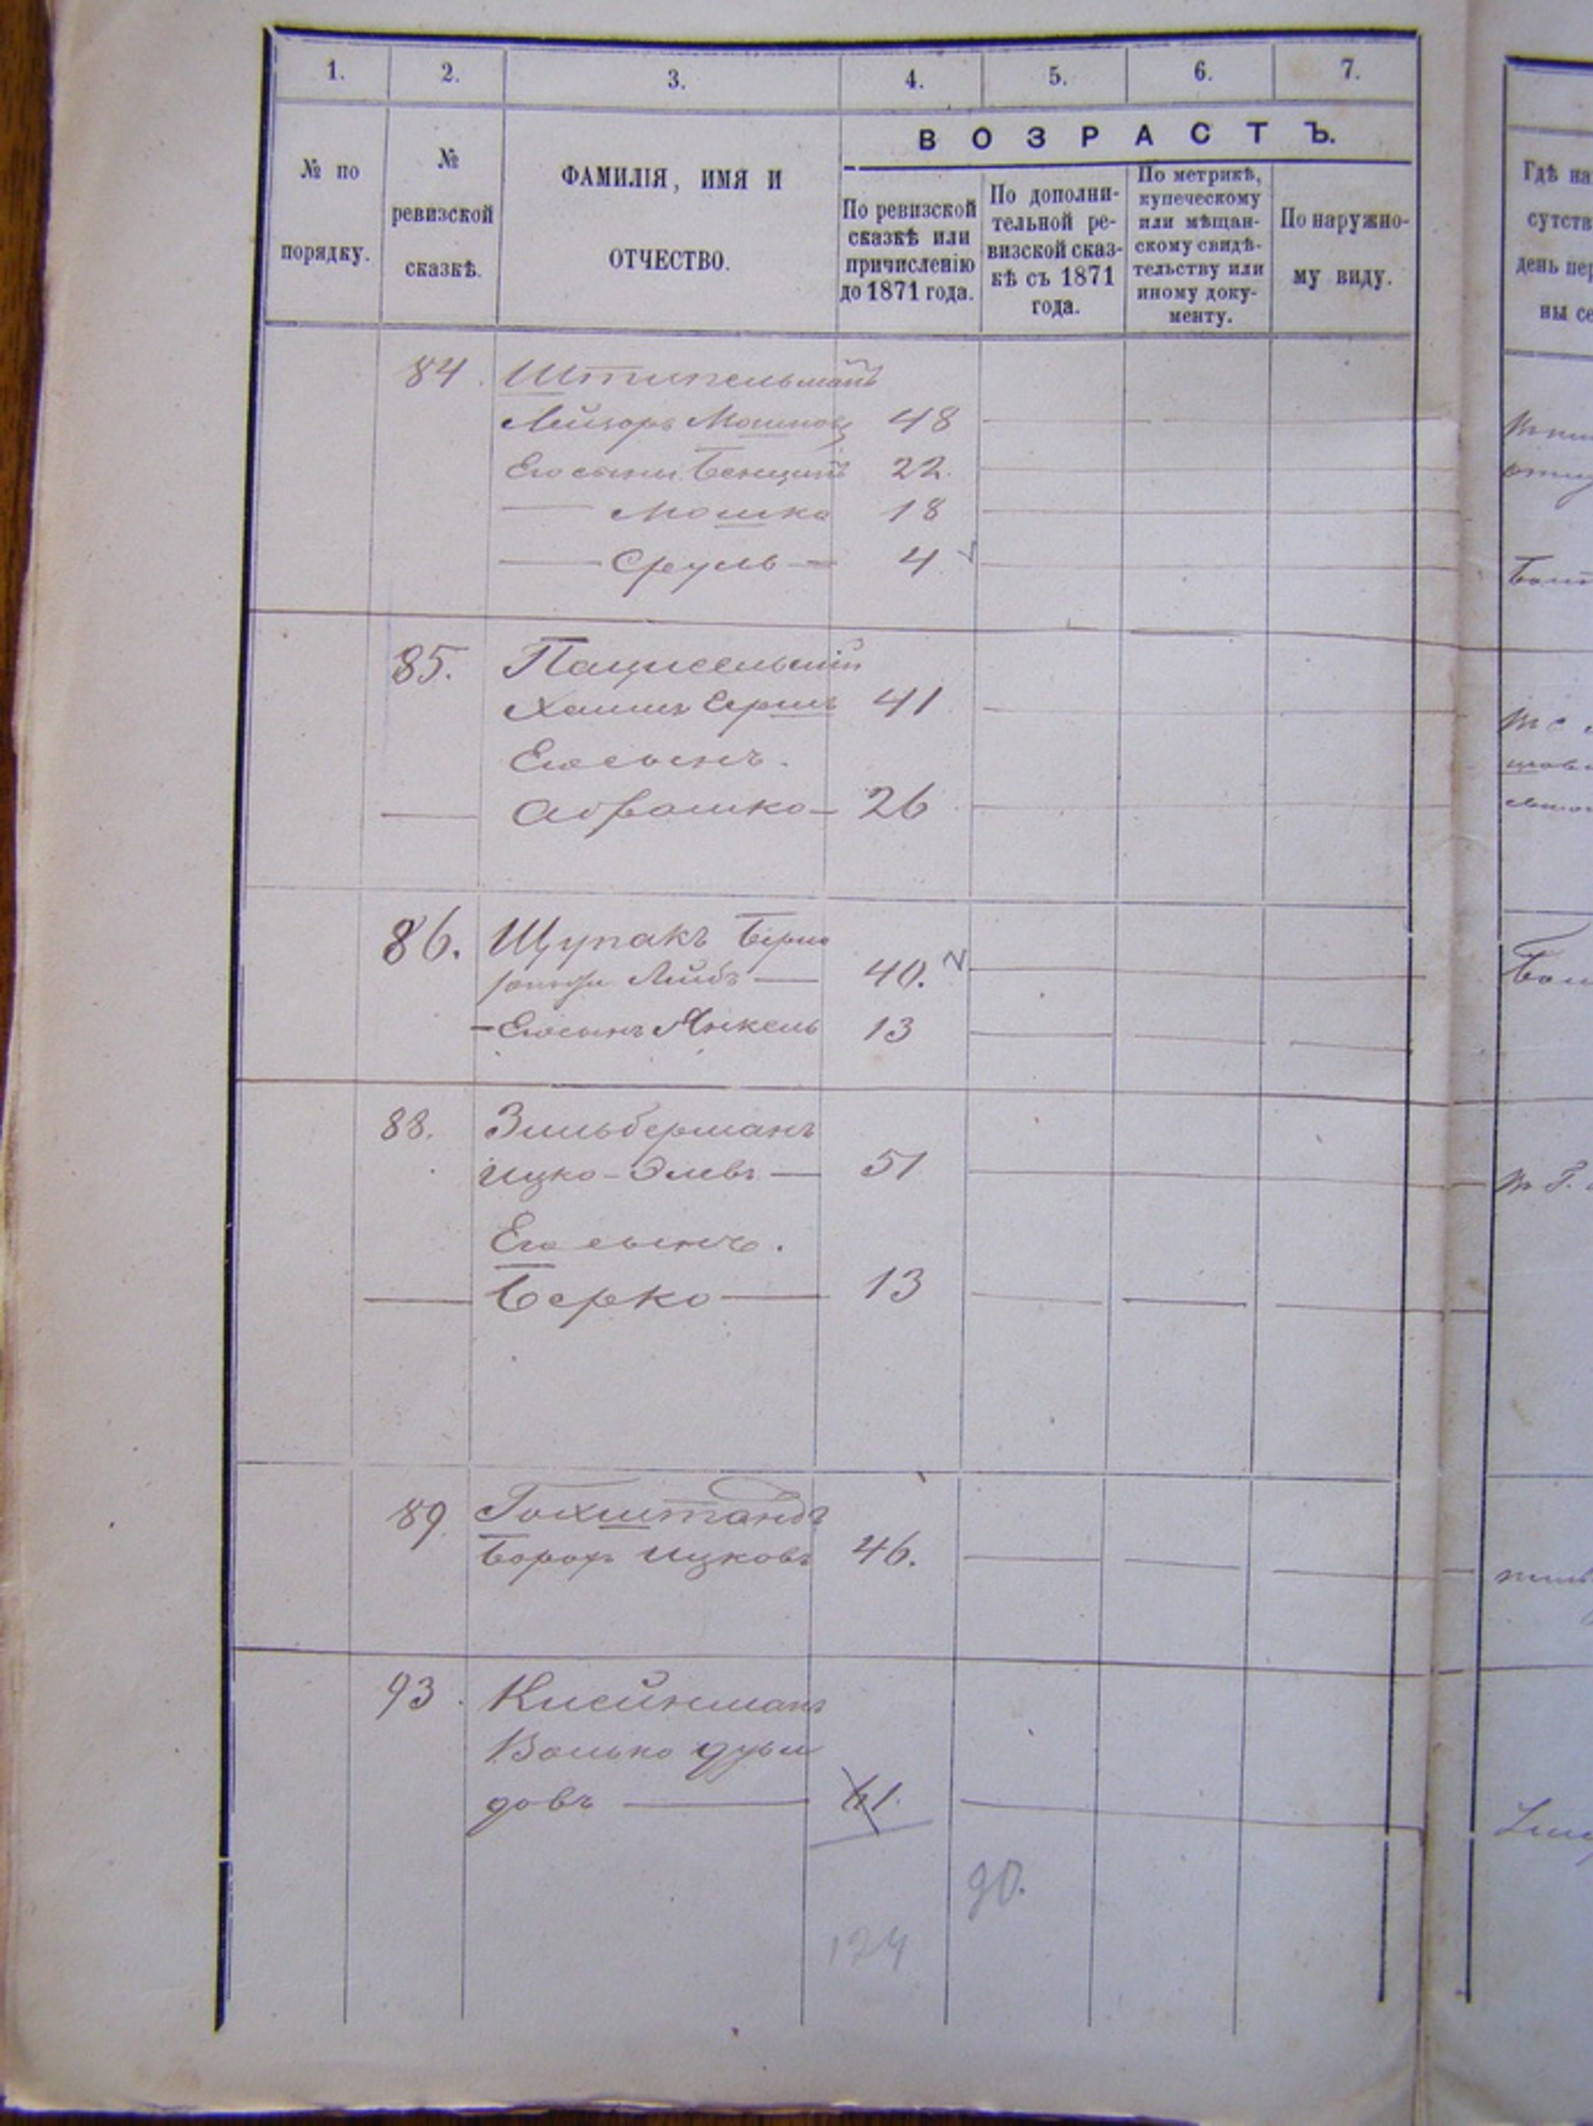 1. 2. 3. 4. 5. 6. 7.
№ по порядку.
№ ревизской сказкѣ.
ФАМИЛІЯ, ИМЯ И
ОТЧЕСТВО.
ВОЗРАСТЪ.
По ревизской
сказкѣ или
причисленію
до 1871 года.
По дополни-
тельной ре-
визской сказ-
кѣ съ 1871
года.
По метрикѣ,
купеческому
или мѣщан-
скому свидѣ-
тельству или
иному доку-
менту.
По наружно-
му виду.
Гдѣ на
сутств
день пер
ны се
84. Штипельманъ
Лейзоръ Мошковъ 48
Его сыны Бенціонъ 22.
Мошко 18
Сруль 4
85.
Хаимъ Герш 41
Его сынъ.
Абрашко 26
86. Щупакъ Берко
Лейб 40.
Его сынъ Янкель 13
88. Зильберманъ
Ицко-Элевъ 51
Его сынъ.
Берко 13
89 Гохштандъ
Борохъ Ицковъ 46.
93. Клейнманъ
Волько
довъ 41.
90.
124